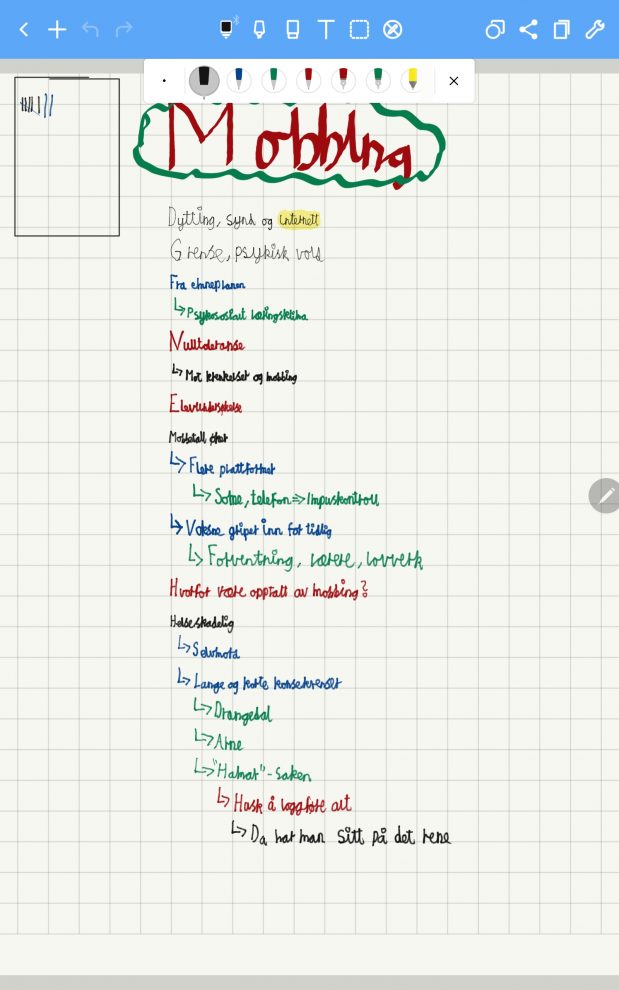 Mobbing
Dytting, synd og internett
Grense, psykisk vold
Fra emneplanen
↳ Psykososialt læringsklima
Nulltoleranse
↳ Mot krenkelser og mobbing
Elevundersøkelse
Mobbetall øker
↳ Flere plattformer
↳ Some, telefon => Impuskontroll
↳ Voksne griper inn for tidlig
↳ Forventning, lærere, lovverk
Hvorfor være opptatt av mobbing?
Helseskadelig
↳ Selvmord
↳ Lange og korte konsekvenser
↳ Drangedal
↳ Arne
↳ "Hamar"-saken
↳ Husk å loggføre alt
↳ Da har man sitt på det rene